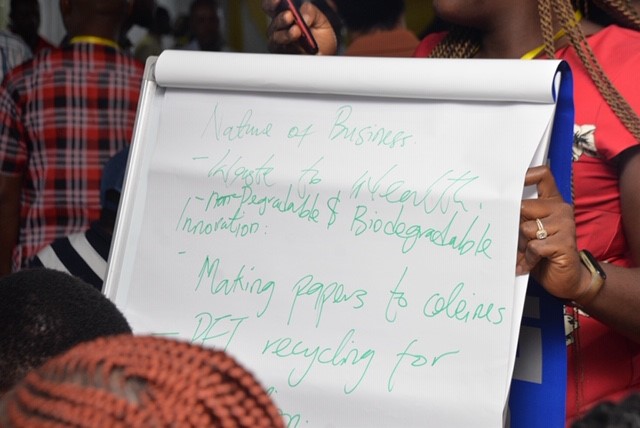 Nature of Business.
- Waste to Wealth.
- non-Degradable & Biodegradable
Innovation:
-
Making papers to
- PET recycling for